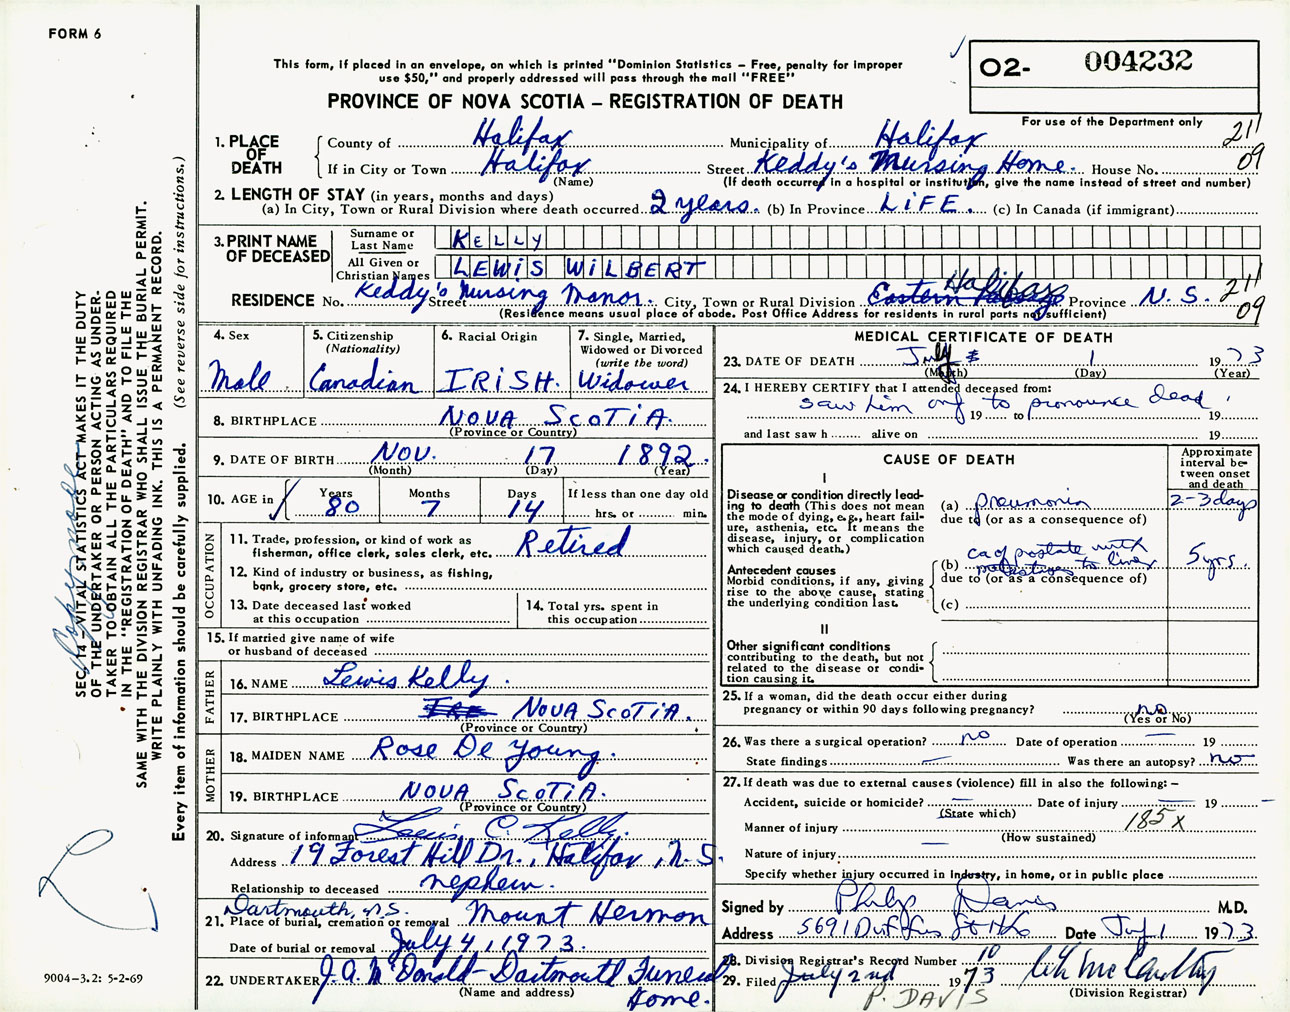 FORM 6
This form, if placed in an envelope, on which is printed "Dominion Statistics – Free, penalty for improper
use $50," and properly addressed will pass through the mail "FREE"
PROVINCE OF NOVA SCOTIA – REGISTRATION OF DEATH
O2- 004232
For use of the Department only
211
09
1. PLACE OF DEATH
County of Halifax Municipality of Halifax
If in City or Town Halifax Street Keddy's Nursing Home. House No.
(Name) (If death occurred in a hospital or institution, give the name instead of street and number)
2. LENGTH OF STAY (in years, months and days)
(a) In City, Town or Rural Division where death occurred 2 years. (b) In Province LIFE. (c) In Canada (if immigrant)
3. PRINT NAME OF DECEASED
Surname or Last Name KELLY
All Given or Christian Names LEWIS WILBERT
Halifax
RESIDENCE No. Keddy's Nursing Manor. Street City, Town or Rural Division Eastern Passage Province N.S.
211
09
(Residence means usual place of abode. Post Office Address for residents in rural parts not sufficient)
4. Sex Male
5. Citizenship (Nationality) Canadian
6. Racial Origin IRISH.
7. Single, Married, Widowed or Divorced (write the word) Widower
8. BIRTHPLACE NOVA SCOTIA.
(Province or Country)
9. DATE OF BIRTH NOV. 17 1892.
(Month) (Day) (Year)
10. AGE in Years 80 Months 7 Days 14 If less than one day old
hrs. or min.
OCCUPATION
11. Trade, profession, or kind of work as
fisherman, office clerk, sales clerk, etc. Retired
12. Kind of industry or business, as fishing,
bank, grocery store, etc.
13. Date deceased last worked
at this occupation
14. Total yrs. spent in
this occupation
15. If married give name of wife
or husband of deceased
FATHER
16. NAME Lewis Kelly.
17. BIRTHPLACE IRE NOVA SCOTIA.
(Province or Country)
MOTHER
18. MAIDEN NAME Rose De Young.
19. BIRTHPLACE NOVA SCOTIA.
(Province or Country)
20. Signature of informant Lewis C. Kelly.
Address 19 Forest Hill Dr., Halifax, N.S.
Relationship to deceased nephew.
Dartmouth, N.S.
21. Place of burial, cremation or removal Mount Hermon
Date of burial or removal July 4, 1973.
22. UNDERTAKER J.A. McDonald - Dartmouth Funeral
(Name and address) Home.
MEDICAL CERTIFICATE OF DEATH
23. DATE OF DEATH July 1 1973
(Month) (Day) (Year)
24. I HEREBY CERTIFY that I attended deceased from:
saw him only to pronounce dead.
19 to 19
and last saw h alive on 19
CAUSE OF DEATH
Approximate interval between onset and death
I
Disease or condition directly leading to death (This does not mean
the mode of dying, e.g., heart failure, asthenia, etc. It means the
disease, injury, or complication
which caused death.)
(a) pneumonia 2-3 days
due to (or as a consequence of)
Antecedent causes
Morbid conditions, if any, giving
rise to the above cause, stating
the underlying condition last.
(b) ca of prostate with
metastases to liver 5 yrs.
due to (or as a consequence of)
(c)
II
Other significant conditions
contributing to the death, but not
related to the disease or condition causing it.
25. If a woman, did the death occur either during
pregnancy or within 90 days following pregnancy? no
(Yes or No)
26. Was there a surgical operation? no Date of operation — 19
State findings — Was there an autopsy? no
27. If death was due to external causes (violence) fill in also the following: –
Accident, suicide or homicide? — Date of injury — 19 —
(State which)
Manner of injury 185X
(How sustained)
Nature of injury —
Specify whether injury occurred in Industry, in home, or in public place
Signed by Philip Davis M.D.
Address 5691 Duffus St Hfx Date July 1 1973
28. Division Registrar's Record Number 10
29. Filed July 2nd 1973
(Division Registrar)
P. DAVIS
SEC. 14 – VITAL STATISTICS ACT MAKES IT THE DUTY
OF THE UNDERTAKER OR PERSON ACTING AS UNDERTAKER TO OBTAIN ALL THE PARTICULARS REQUIRED
IN THE "REGISTRATION OF DEATH" AND TO FILE THE
SAME WITH THE DIVISION REGISTRAR WHO SHALL ISSUE THE BURIAL PERMIT.
WRITE PLAINLY WITH UNFADING INK. THIS IS A PERMANENT RECORD.
Every item of information should be carefully supplied. (See reverse side for instructions.)
9004–3.2: 5-2-69